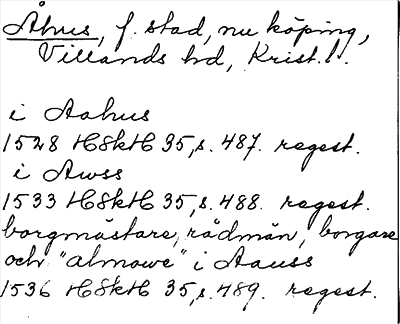 Åhus, f. stad, nu köping,
Villands hd, Krist. l.
i Aahus
1528 HSkH 35, s. 487. regest.
i Awss
1533 HSkH 35, s. 488. regest.
borgmästare, rådmän, borgare
och "almowe" i Aauss
1536 HSkH 35, s. 489. regest.